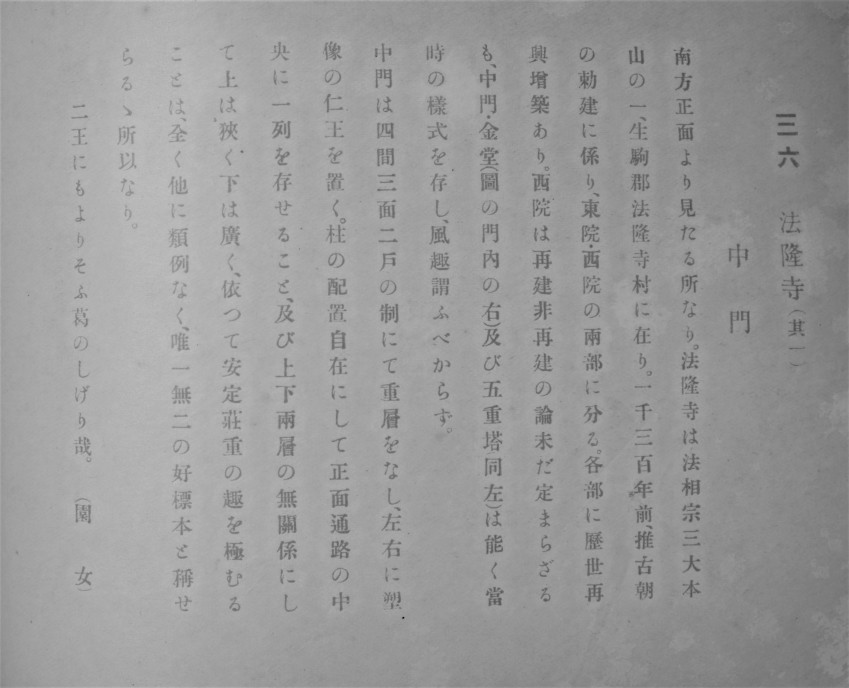 三六 法隆寺(其一)
中門
南方正面より見たる所なり。法隆寺は法相宗三大本
山の一、生駒郡法隆寺村に在り。一千三百年前、推古朝
の勅建に係り、東院・西院の兩部に分る。各部に歷世再
興增築あり。西院は再建非再建の論未だ定まらざる
も、中門・金堂(圖の門內の右)及び五重塔同左)は能く當
時の樣式を存し、風趣謂ふべからず。
中門は四間三面二戶の制にて重層をなし、左右に塑
像の仁王を置く。柱の配置自在にして正面通路の中
央に一列を存せること、及び上下兩層の無關係にし
て上は狹く、下は廣く、依つて安定莊重の趣を極むる
ことは、全く他に類例なく、唯一無二の好標本と稱せ
らるゝ所以なり。
二王にもよりそふ葛のしげり哉。(園女)